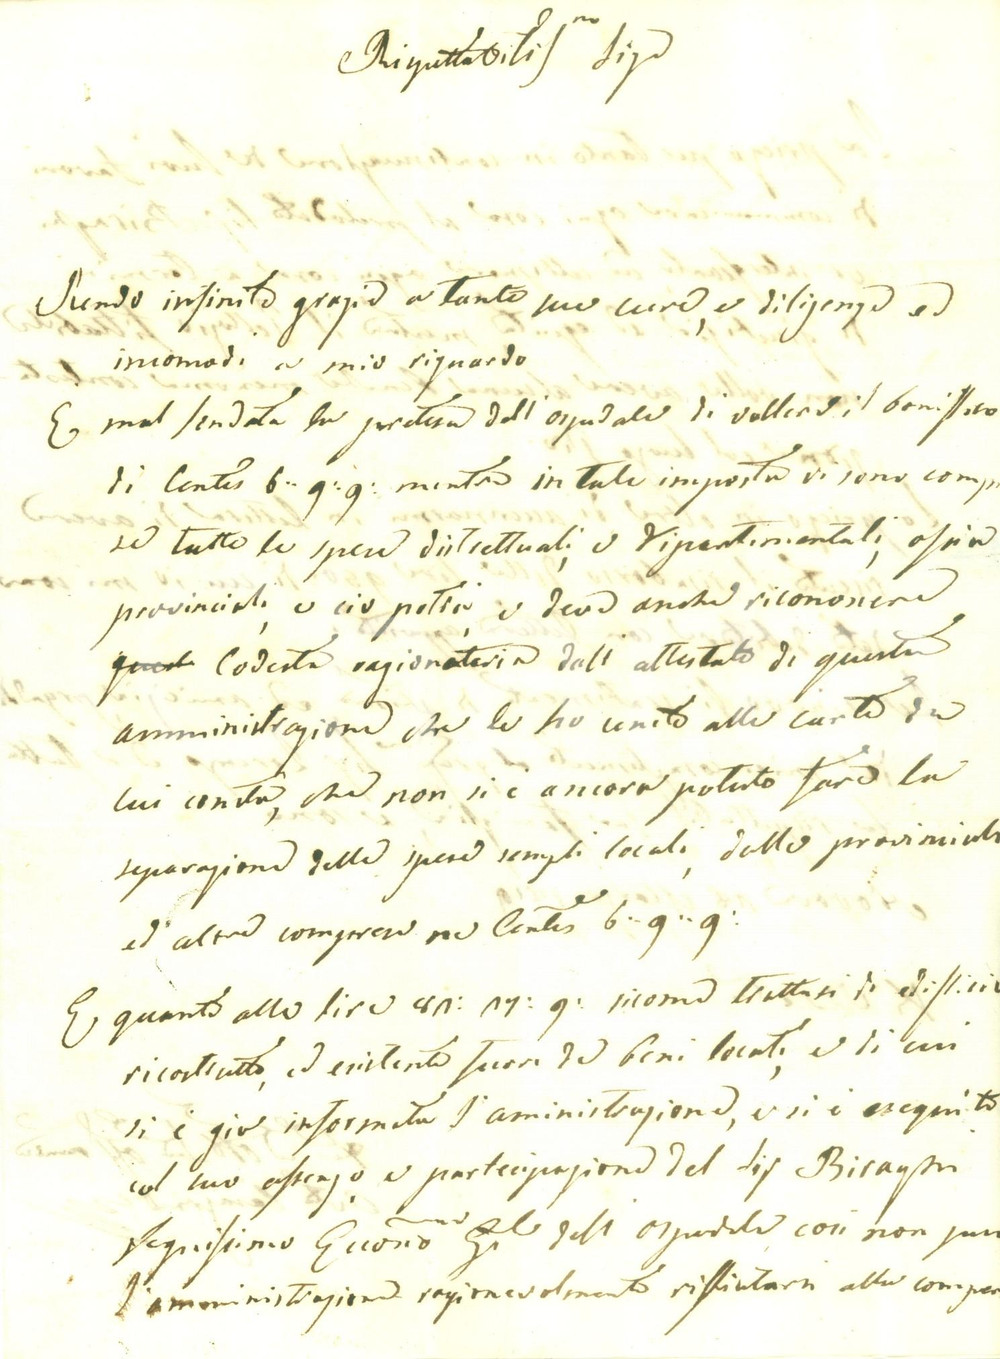 Rispettabiliss.mo Sig.e
Rendo infinite grazie a tante sue cure, e diligenze ed
incomodi a mio riguardo
E mal fondata la pretesa dell'ospedale di vollere il bonifico
di Centes 6:9:9: mentre in tale imposta vi sono comp
se tutte le spese distrettuali, e Dipartimentali, ossia
provinciali, e ciò potrà, e deve anche riconoscere
questa Codesta ragionateria dall attestato di questa
amministrazione che le ho unito alle carte da
cui consta, che non si è ancora potuto fare la
separazione delle spese sempli locali, dalle provinciali
ed altre comprese ne Centes 6:9:9:
E quanto alle lire 81: 17: 9: sicome trattasi di edificio
ricostrutto, ed esistente fuori de beni locati, e di cui
si è già informata l'aministrazione, e si è eseguito
col suo assenso, e partecipazione del Sig Biraghi
degnissimo Econo Gle dell ospedale, così non può
l'amministrazione ragionevolmente rifiutarsi alla compen